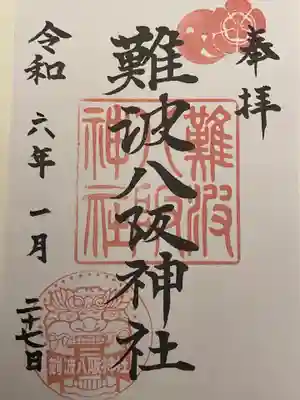 奉拝
難波八阪神社
難波
八阪
神社
令和六年一月二十七日
難波八阪神社